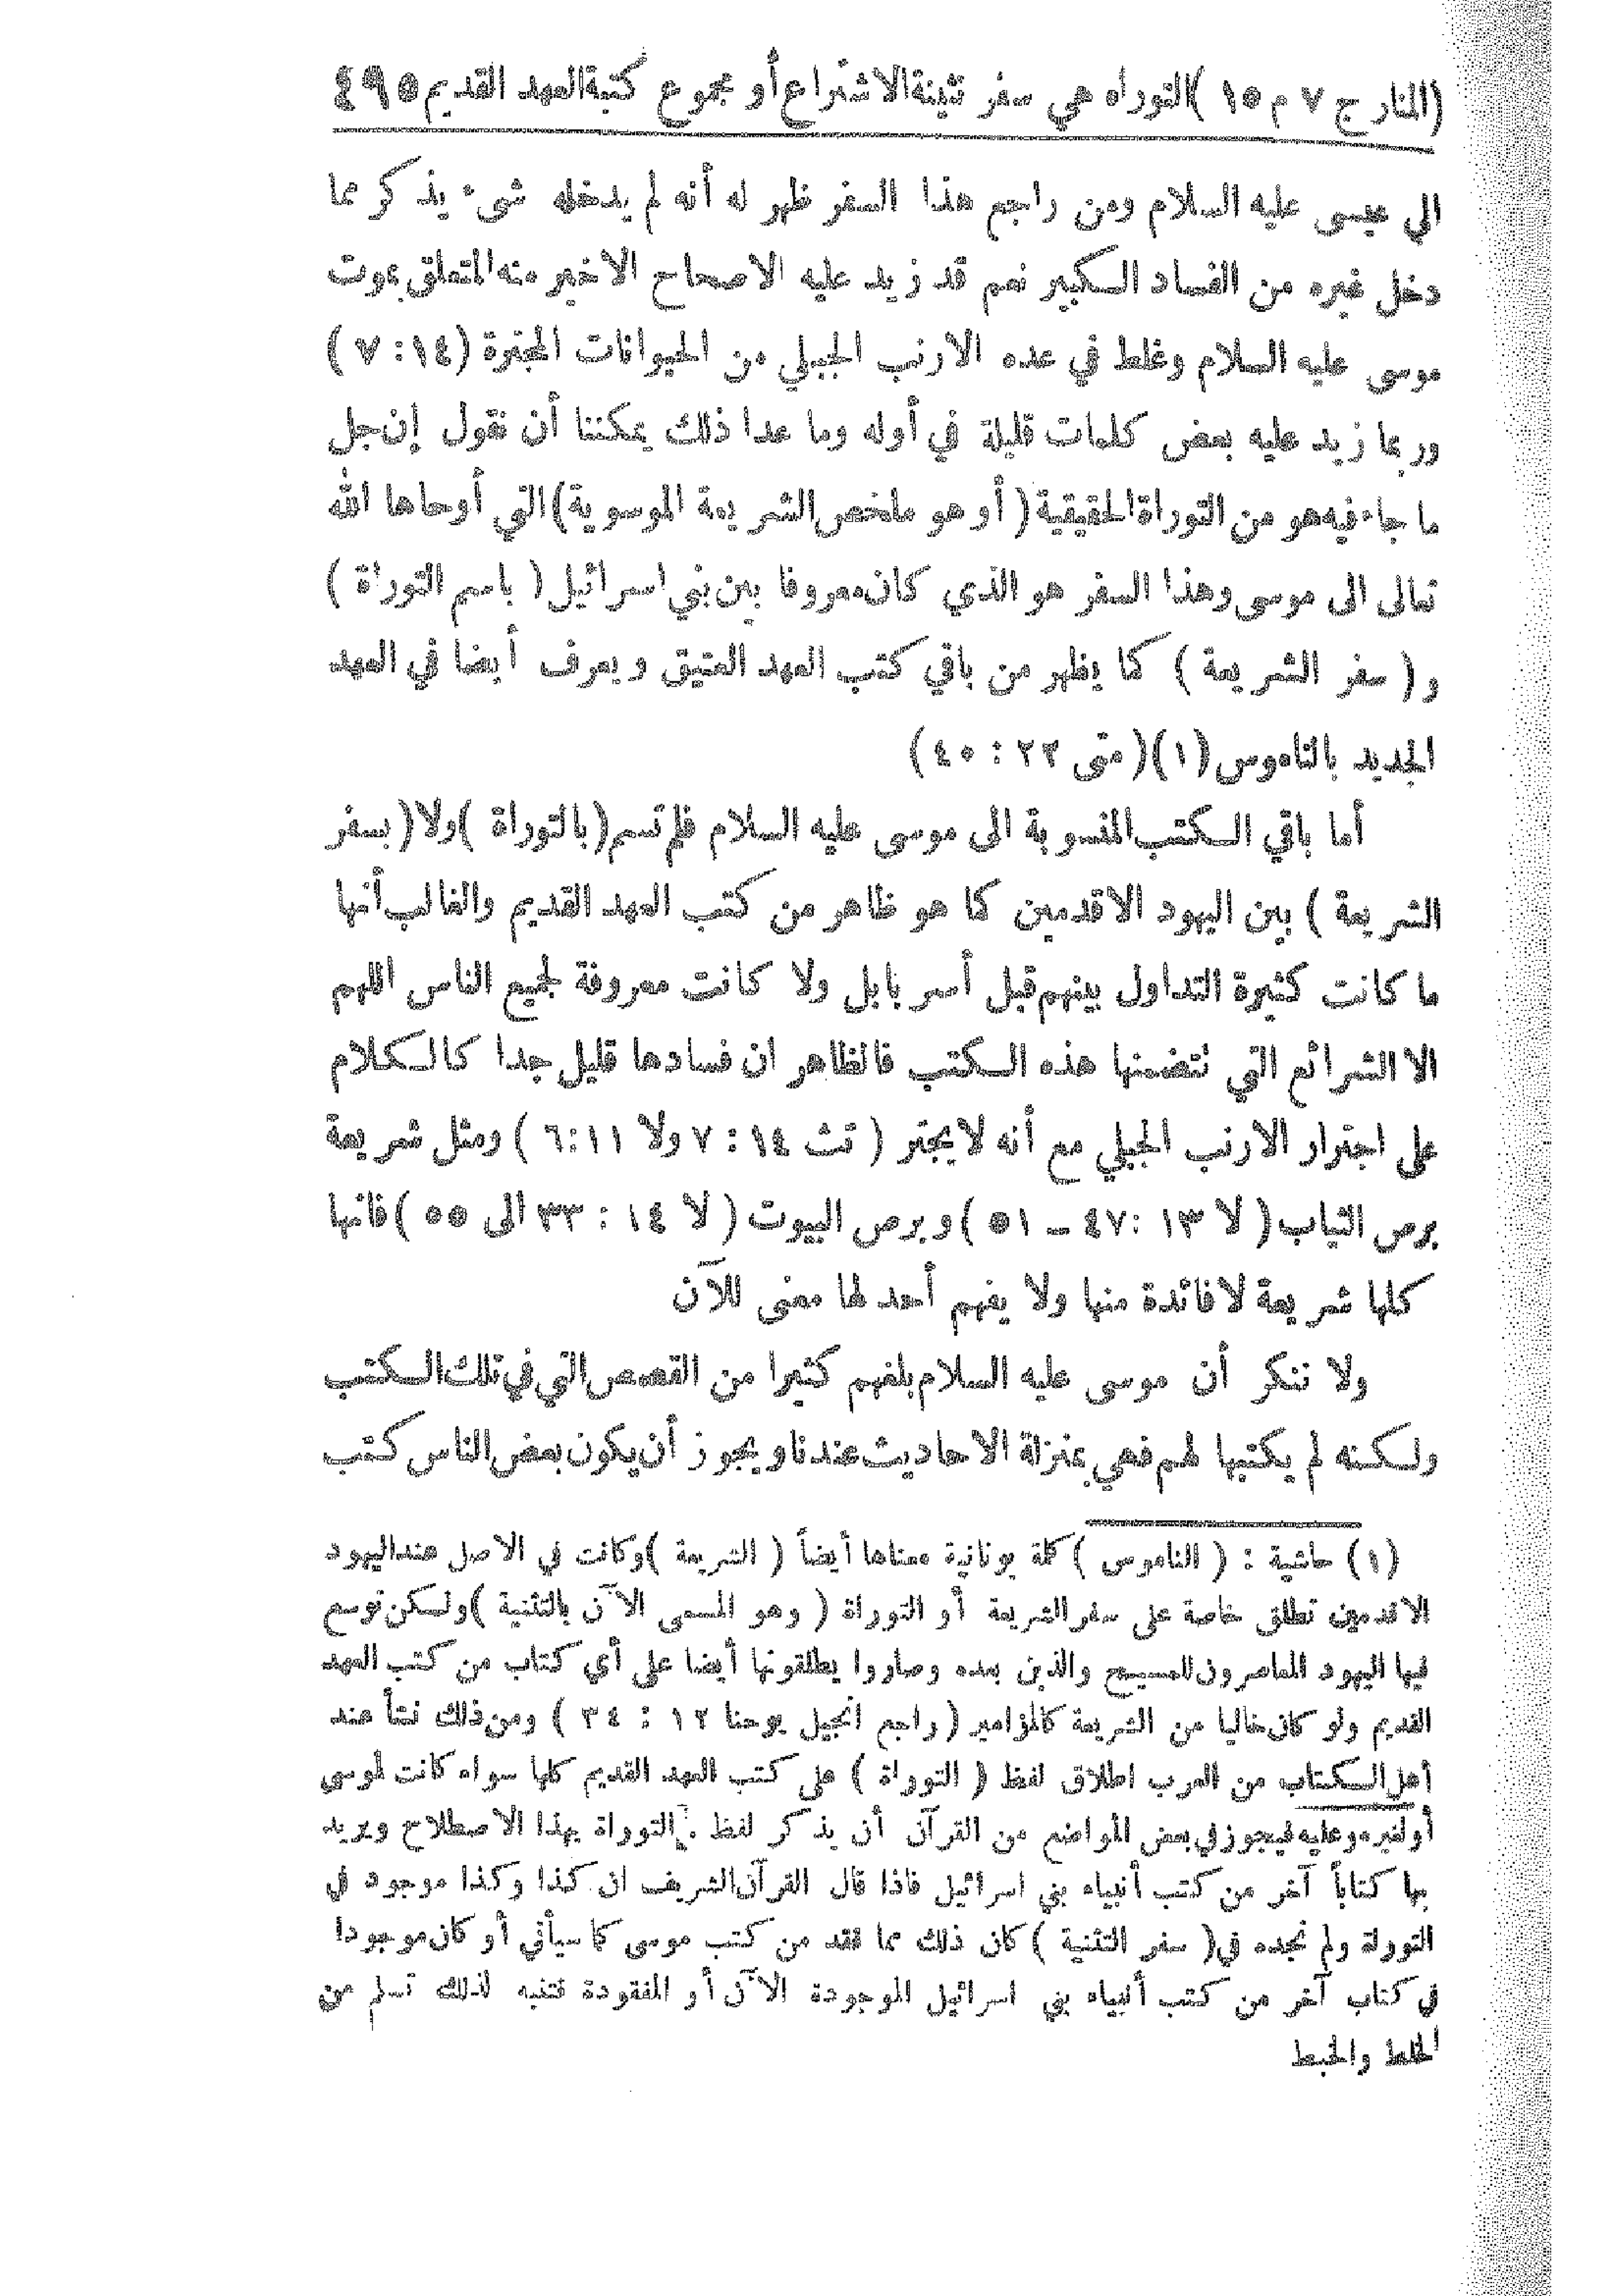 (المنار ج ٧ م ١٥) التوراه هي سفر تثينة الاشتراع أو مجموع كتبة العهد القديم ٤٩٥
الي عيسى عليه السلام ومن راجع هذا السفر ظهر له أنه لم يدخله شىء يذكر مما
دخل غيره من الفساد الكبير نعم قد زيد عليه الاصحاح الاخير منه المتعلق بموت
موسى عليه السلام وغلط في عده الارنب الجبيلي من الحيوانات المجترة (١٤: ٧)
وربما زيد عليه بعض كلمات قليلة في أوله وما عدا ذلك يمكننا أن نقول إن جل
ما جاء فيه هو من التوراة الحقيقية (أو هو ملخص الشريعة الموسوية) التي أوحاها الله
تعالى الى موسى وهذا السفر هو الذي كان معروفا بين بني اسرائيل (باسم التوراة)
و(سفر الشريعة) كما يظهر من باقي كتب العهد العتيق ويعرف أيضا في العهد
الجديد بالناموس (١) (متى ٢٢: ٤٠)
أما باقي الكتب المنسوبة الى موسى عليه السلام فلم تسم (بالتوراة) ولا (بسفر
الشريعة) بين اليهود الاقدمين كما هو ظاهر من كتب العهد القديم والغالب أنها
ما كانت كثيرة التداول بينهم قبل أسر بابل ولا كانت معروفة لجميع الناس اللهم
الا الشرائع التي تتضمنها هذه الكتب فالظاهر ان فسادها قليل جدا كالكلام
على اجترار الارنب الجبلي مع أنه لا يجتر (تث ١٤: ٧ ولا ١١: ٦) ومثل شريعة
برص الثياب (لا ١٣: ٤٧ ــ ٥١) وبرص البيوت (لا ١٤: ٣٣ الى ٥٥) فانها
كلها شريعة لا فائدة منها ولا يفهم أحد لها معنى للآن
ولا ننكر أن موسى عليه السلام بلغهم كثيرا من القصص التي في تلك الكتب
ولكنه لم يكتبها لهم فهي بمنزلة الاحاديث عندنا ويجوز أن يكون بعض الناس كتب
(١) حاشية: (الناموس) كلمة يونانية معناها أيضاً (الشريعة) وكانت في الاصل عند اليهود
الاقدمين تطلق خاصة على سفر الشريعة أو التوراة (وهو المسمى الآن بالتثنية) ولكن توسع
فيها اليهود المعاصرون للمسيح والذين بعده وصاروا يطلقونها أيضا على أي كتاب من كتب العهد
القديم ولو كان خاليا من الشريعة كالمزامير (راجع انجيل يوحنا ١٢: ٣٤) ومن ذلك نشأ عند
أهل الكتاب من العرب اطلاق لفظ (التوراة) على كتب العهد القديم كلها سواء كانت لموسى
أو لغيره وعليه فيجوز في بعض المواضع من القرآن أن يذكر لفظ التوراة بهذا الاصطلاح ويريد
بها كتاباً آخر من كتب أنبياء بني اسرائيل فاذا قال القرآن الشريف ان كذا وكذا موجود في
التوراة ولم نجده في (سفر التثنية) كان ذلك مما فقد من كتب موسى كما سيأتي أو كان موجودا
في كتاب آخر من كتب أنبياء بني اسرائيل الموجودة الآن أو المفقودة فتنبه لذلك تسلم من
الخلط والخبط